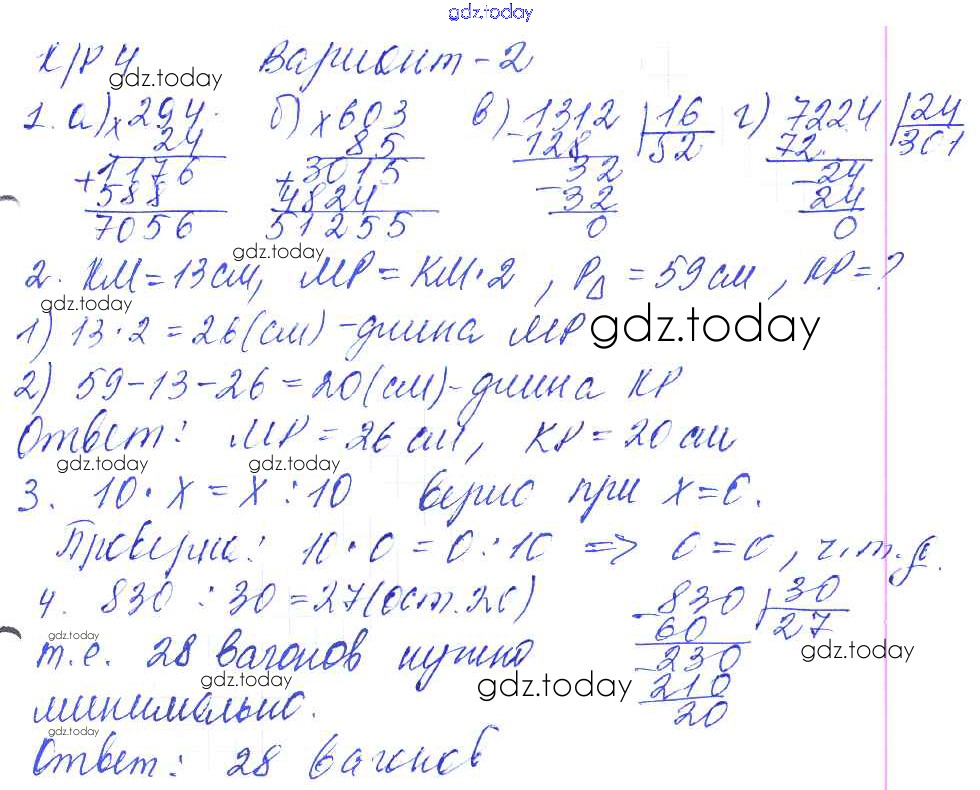 gdz.today
К/Р 4 Вариант - 2
gdz.today
1. а) × 294 б) × 603 в) 1312 | 16 г) 7224 | 24
24 85 - 128 52 72 301
+ 1176 + 3015 32 - 24
588 4824 - 32 24
7056 51255 0 0
gdz.today
2. КМ = 13 см, МР = КМ · 2 , Р△ = 59 см , КР = ?
gdz.today
1) 13 · 2 = 26 (см) - длина МР gdz.today
2) 59 - 13 - 26 = 20 (см) - длина КР
Ответ: МР = 26 см, КР = 20 см
gdz.today gdz.today
3. 10 · х = х : 10 верно при х = 0.
Проверка: 10 · 0 = 0 : 10 => 0 = 0 , ч.т.д.
4. 830 : 30 = 27 (ост. 20) - 830 | 30
gdz.today 60 27
т.е. 28 вагонов нужно - 230 gdz.today
gdz.today gdz.today 210
минимально. 20
gdz.today
Ответ: 28 вагонов